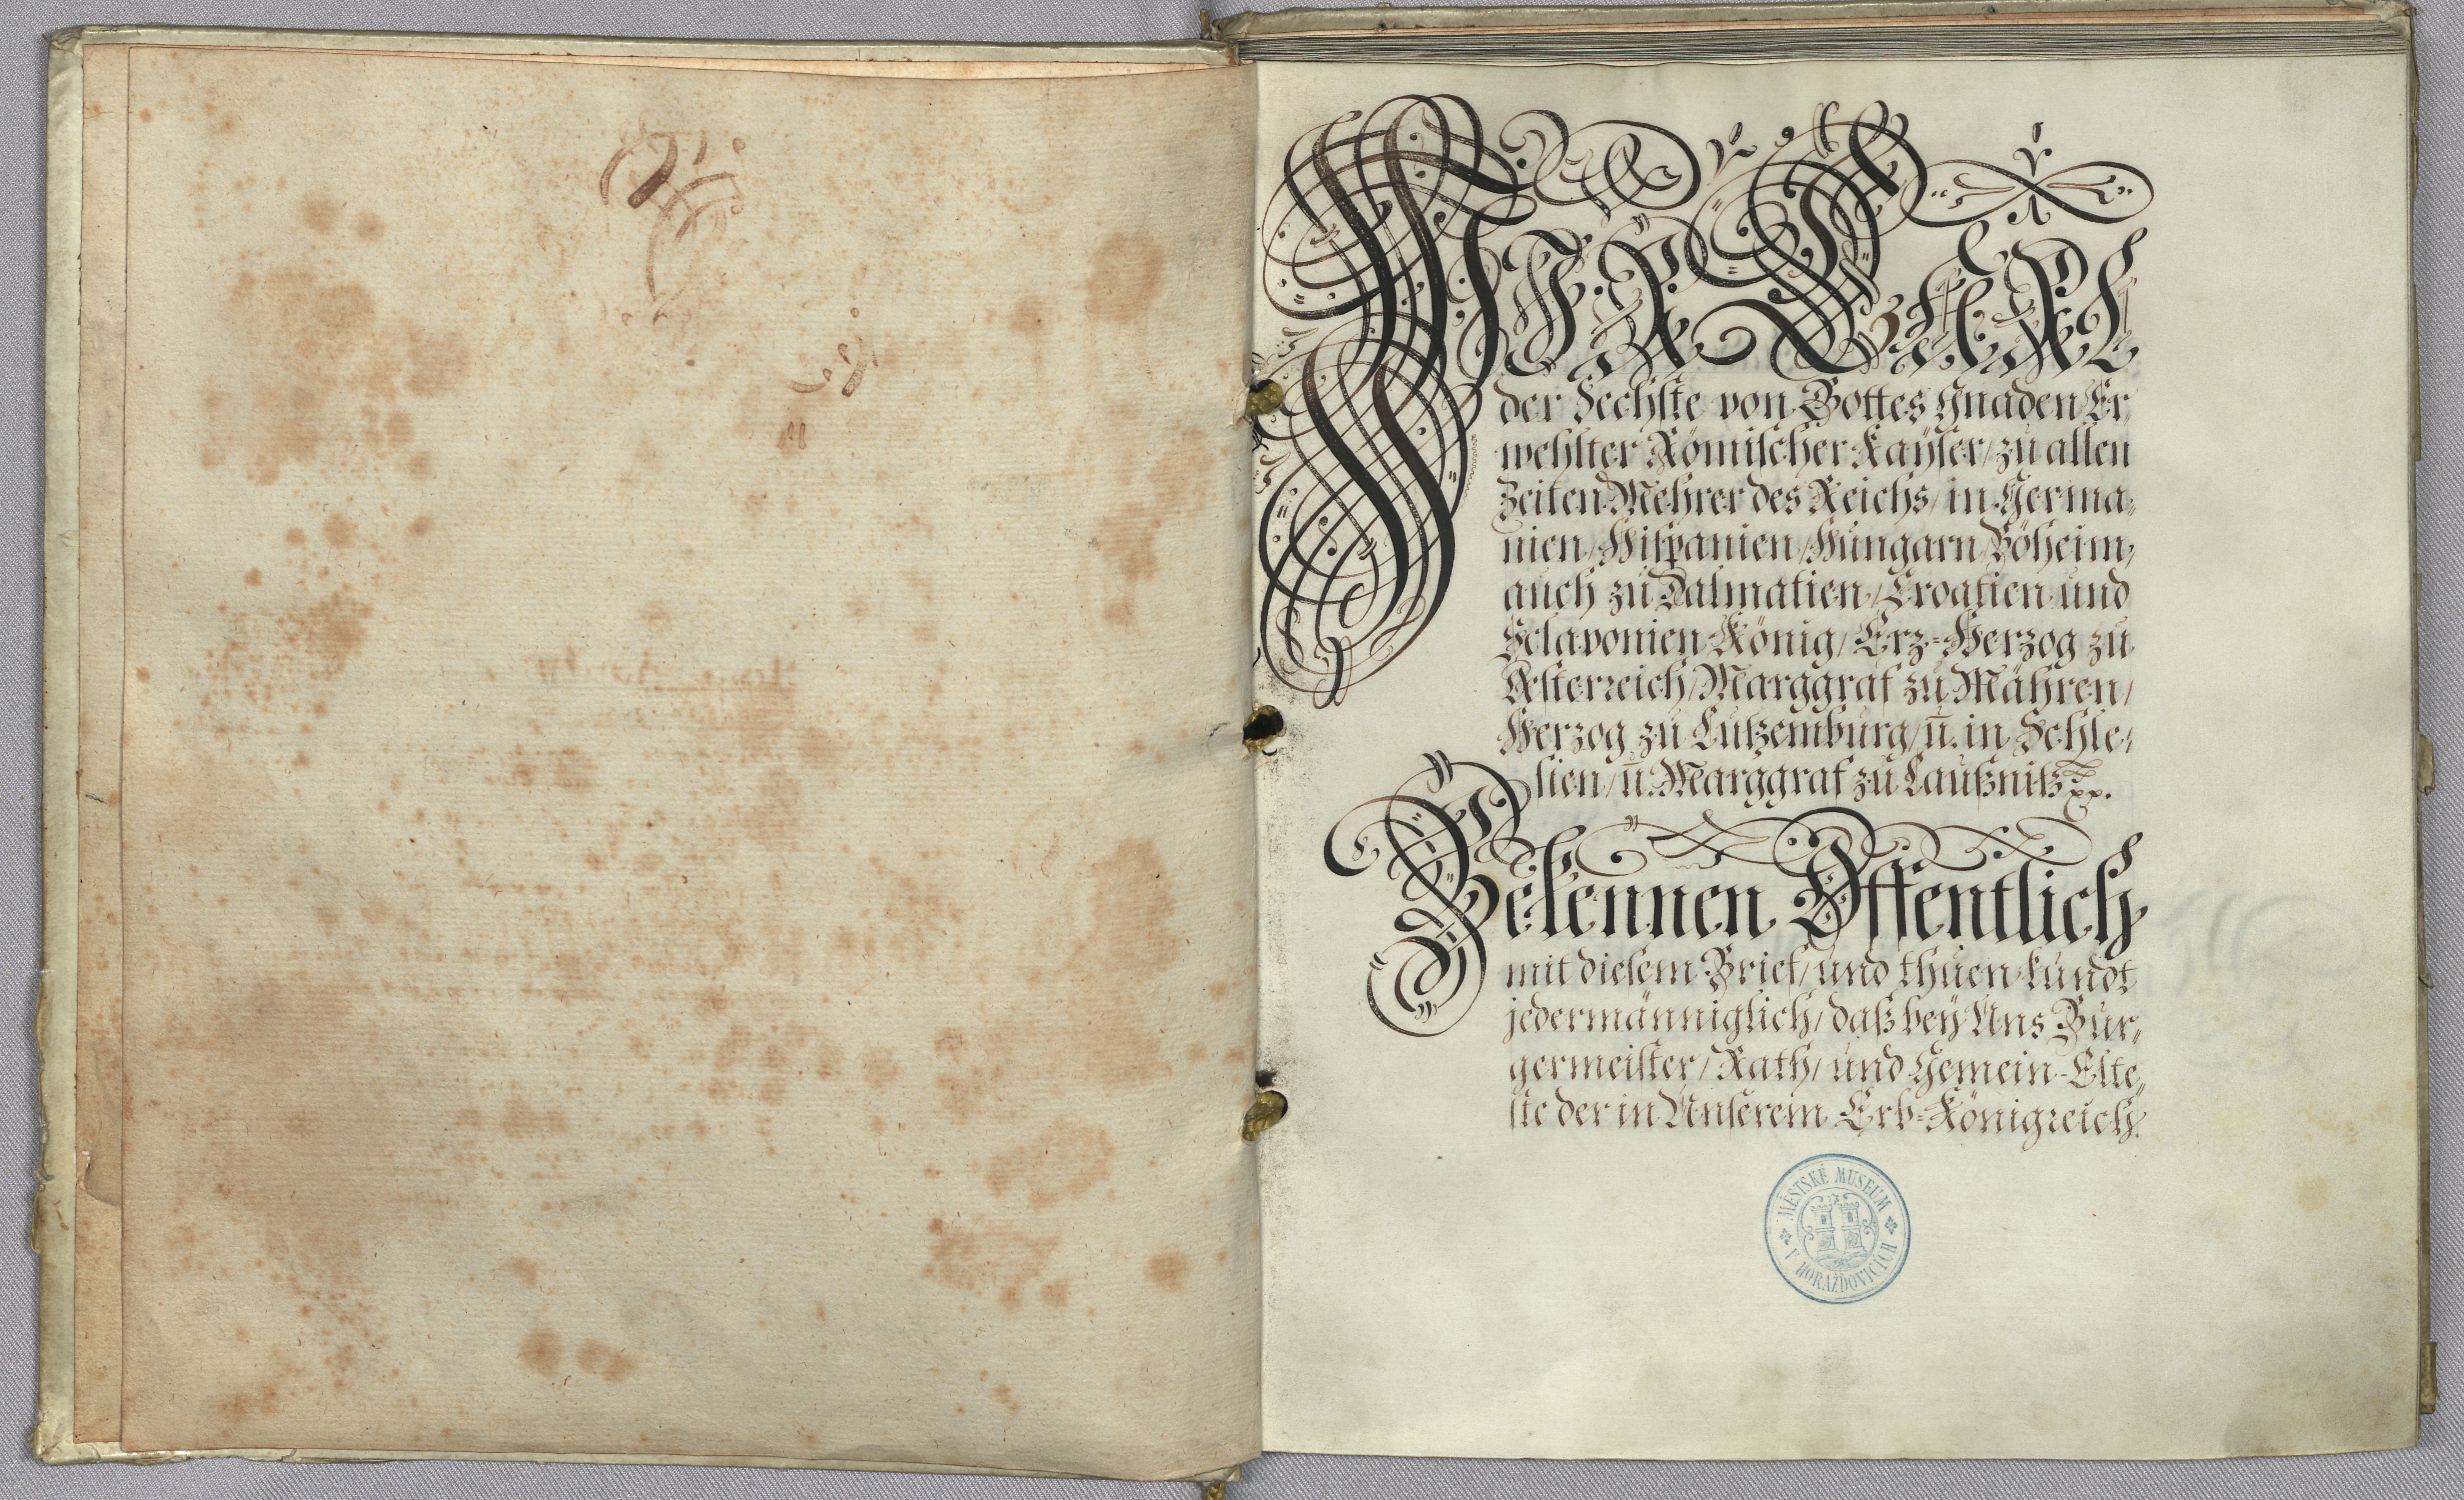 WIR CARL
der Sechste von Gottes Gnaden Er
wehlter Römischer Kaÿser/ zu allen
Zeiten Mehrer des Reichs/ in Germa=
nien/ Hispanien/ Hungarn/ Böheim/
auch zu Dalmatien/ Croatien und
Sclavonien König/ Erz=Herzog zu
Österreich/ Marggraf zu Mähren/
Herzog zu Lutzemburg/ ū. in Schle=
sien/ ū. Marggraf zu Laußnitz
Bekennen Öffentlich
mit diesem Brief/ und thuen kundt
jedermänniglich/ daß beÿ Uns Bur=
germeister/ Rath/ und Gemein-Elte=
ste der in Unserem Erb=Königreich
MĚSTSKÉ MUSEUM
V HORAŽĎOVICÍCH